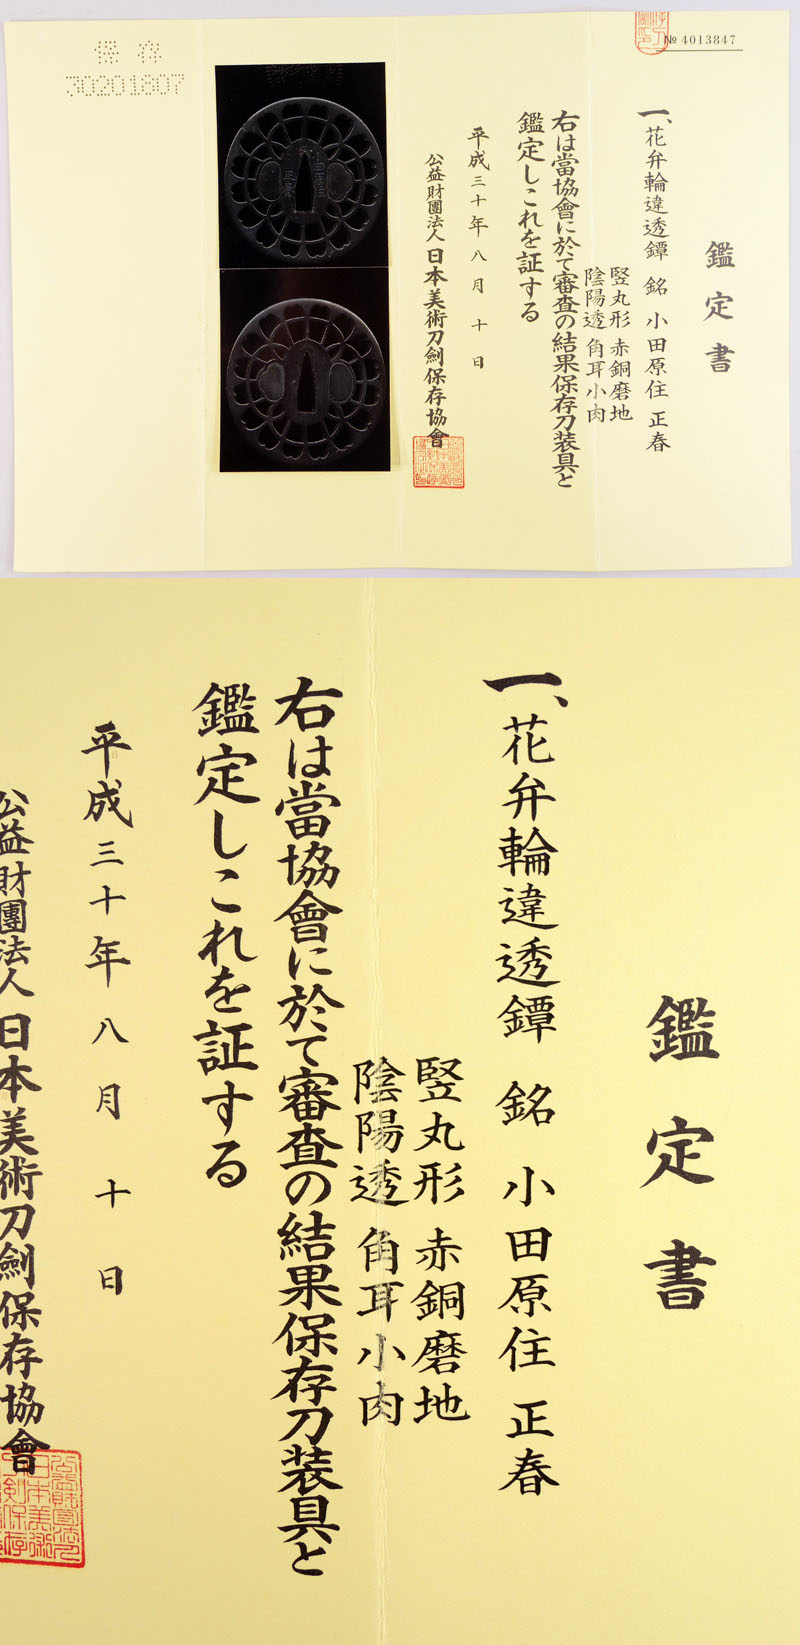 № 4013847
鑑定書
一、花弁輪違透鐔 銘 小田原住 正春
竪丸形 赤銅磨地
陰陽透 角耳小肉
右は當協會に於て審査の結果保存刀装具と
鑑定しこれを証する
平成三十年八月十日
公益財團法人 日本美術刀劍保存協會
保存
30201807
鑑定書
一、花弁輪違透鐔 銘 小田原住 正春
竪丸形 赤銅磨地
陰陽透 角耳小肉
右は當協會に於て審査の結果保存刀装具と
鑑定しこれを証する
平成三十年八月十日
公益財團法人 日本美術刀劍保存協會